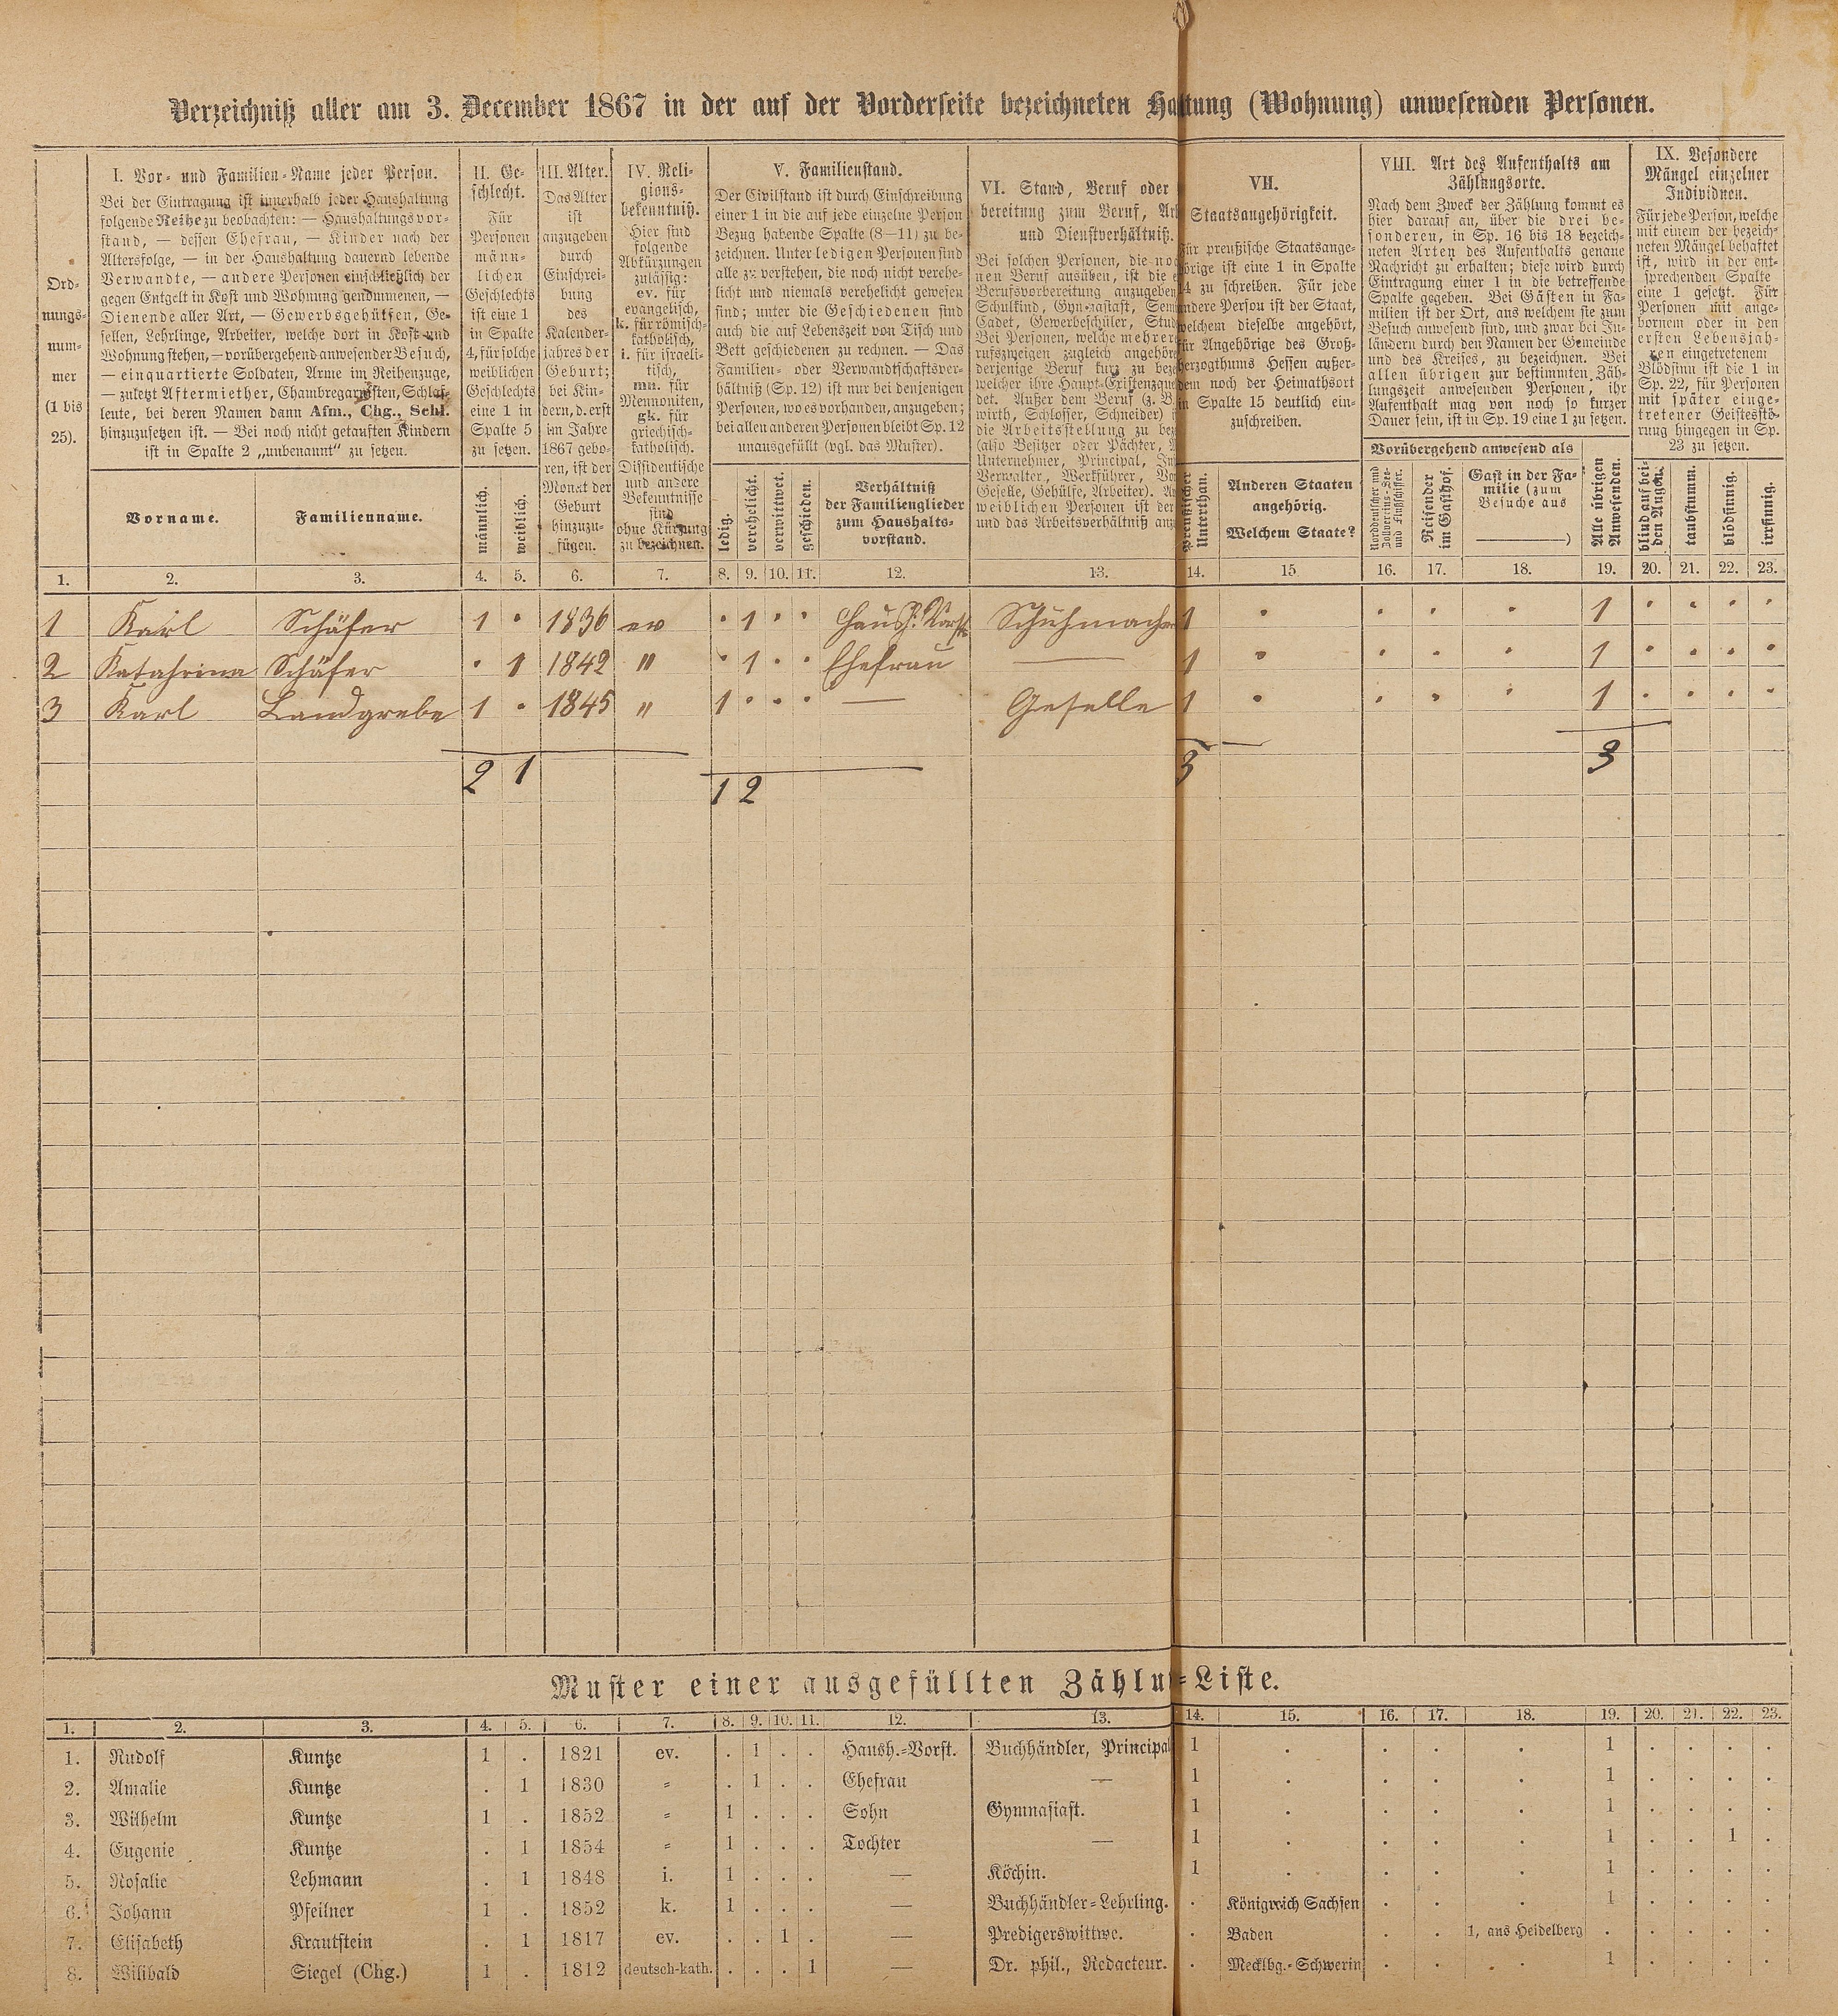 Verzeichniß aller am 3. December 1867 in der auf der Vorderseite bezeichneten Haltung (Wohnung) anwesenden Personen.
Ord-
nungs-
num-
mer
(1 bis
25).
I. Vor- und Familien-Name jeder Person.
Bei der Eintragung ist innerhalb jeder Haushaltung
folgende Reihe zu beobachten: — Haushaltungsvor-
stand, — dessen Ehefrau, — Kinder nach der
Altersfolge, — in der Haushaltung dauernd lebende
Verwandte, — andere Personen einschließlich der
gegen Entgelt in Kost und Wohnung genommenen, —
Dienende aller Art, — Gewerbsgehülfen, Ge-
sellen, Lehrlinge, Arbeiter, welche dort in Kost und
Wohnung stehen, — vorübergehend anwesender Besuch,
— einquartierte Soldaten, Arme im Reihenzuge,
— zuletzt Aftermiether, Chambregarnisten, Schlaf-
leute, bei deren Namen dann Afm., Chg., Schl.
hinzuzusetzen ist. — Bei noch nicht getauften Kindern
ist in Spalte 2 „unbenannt“ zu setzen.
Vorname.
Familienname.
II. Ge-
schlecht.
Für
Personen
männ-
lichen
Geschlechts
ist eine 1
in Spalte
4, für solche
weiblichen
Geschlechts
eine 1 in
Spalte 5
zu setzen.
männlich.
weiblich.
III. Alter.
Das Alter
ist
anzugeben
durch
Einschrei-
bung
des
Kalender-
jahres der
Geburt;
bei Kin-
dern, d. erst
im Jahre
1867 gebo-
ren, ist der
Monat der
Geburt
hinzuzu-
fügen.
IV. Reli-
gions-
bekenntniß.
Hier sind
folgende
Abkürzungen
zulässig:
ev. für
evangelisch,
k. für römisch-
katholisch,
i. für israeli-
tisch,
mn. für
Mennoniten,
gk. für
griechisch-
katholisch.
Dissidentische
und andere
Bekenntnisse
sind
ohne Kürzung
zu bezeichnen.
V. Familienstand.
Der Civilstand ist durch Einschreibung
einer 1 in die auf jede einzelne Person
Bezug habende Spalte (8—11) zu be-
zeichnen. Unter ledigen Personen sind
alle zu verstehen, die noch nicht verehe-
licht und niemals verehelicht gewesen
sind; unter die Geschiedenen sind
auch die auf Lebenszeit von Tisch und
Bett geschiedenen zu rechnen. — Das
Familien- oder Verwandtschaftsver-
hältniß (Sp. 12) ist nur bei denjenigen
Personen, wo es vorhanden, anzugeben;
bei allen anderen Personen bleibt Sp. 12
unausgefüllt (vgl. das Muster).
ledig.
verehelicht.
verwittwet.
geschieden.
Verhältniß
der Familienglieder
zum Haushalts-
vorstand.
VI. Stand, Beruf oder
bereitung zum Beruf, Ar
und Dienstverhältniß.
Bei solchen Personen, die no
nen Beruf ausüben, ist die
Berufsvorbereitung anzugeben
Schulkind, Gymnasiast, Sem
Cadet, Gewerbeschüler, Stu
Bei Personen, welche mehrer
rufszweigen zugleich angehör
derjenige Beruf kurz zu beze
welcher ihre Haupt-Existenzque
det. Außer dem Beruf (z. B.
wirth, Schlosser, Schneider) i
die Arbeitsstellung zu be
(also Besitzer oder Pächter,
Unternehmer, Principal, In
Verwalter, Werkführer, Vo
Geselle, Gehülfe, Arbeiter).
weiblichen Personen ist der
und das Arbeitsverhältniß an
VII.
Staatsangehörigkeit.
Für preußische Staatsange-
hörige ist eine 1 in Spalte
14 zu schreiben. Für jede
andere Person ist der Staat,
welchem dieselbe angehört,
für Angehörige des Groß-
herzogthums Hessen außer-
dem noch der Heimathsort
in Spalte 15 deutlich ein-
zuschreiben.
Preußischer
Unterthan.
Anderen Staaten
angehörig.
Welchem Staate?
VIII. Art des Aufenthalts am
Zählungsorte.
Nach dem Zweck der Zählung kommt es
hier darauf an, über die drei be-
sonderen, in Sp. 16 bis 18 bezeich-
neten Arten des Aufenthalts genaue
Nachricht zu erhalten; diese wird durch
Eintragung einer 1 in die betreffende
Spalte gegeben. Bei Gästen in Fa-
milien ist der Ort, aus welchem sie zum
Besuch anwesend sind, und zwar bei In-
ländern durch den Namen der Gemeinde
und des Kreises, zu bezeichnen. Bei
allen übrigen zur bestimmten Zäh-
lungszeit anwesenden Personen, ihr
Aufenthalt mag von noch so kurzer
Dauer sein, ist in Sp. 19 eine 1 zu setzen.
Vorübergehend anwesend als
Norddeutscher und
Zollvereins-See-
und Flußschiffer.
Reisender
im Gasthof.
Gast in der Fa-
milie (zum
Besuche aus
)
Alle übrigen
Anwesenden.
IX. Besondere
Mängel einzelner
Individuen.
Für jede Person, welche
mit einem der bezeich-
neten Mängel behaftet
ist, wird in der ent-
sprechenden Spalte
eine 1 gesetzt. Für
Personen mit ange-
bornem oder in den
ersten Lebensjah-
ren eingetretenem
Blödsinn ist die 1 in
Sp. 22, für Personen
mit später einge-
tretener Geistesstö-
rung hingegen in Sp.
23 zu setzen.
blind auf bei-
den Augen.
taubstumm.
blödsinnig.
irrsinnig.
1. 2. 3. 4. 5. 6. 7. 8. 9. 10. 11. 12. 13. 14. 15 16. 17. 18. 19. 20. 21. 22. 23.
1 Karl Schäfer 1 . 1836 ev . 1 . . Haush. Vorst. Schuhmacher 1 . . . . 1 . . . .
2 Katahrina Schäfer . 1 1842 " . 1 . . Ehefrau — 1 . . . . 1 . . . .
3 Karl Landgrebe 1 . 1845 " 1 . . . — Geselle 1 . . . . 1 . . . .
2 1 1 2 3 3
Muster einer ausgefüllten Zählu=Liste.
1. 2. 3. 4. 5. 6. 7. 8. 9. 10. 11. 12. 13. 14. 15. 16. 17. 18. 19. 20. 21. 22. 23.
1. Rudolf Kuntze 1 . 1821 ev. . 1 . . Haush.-Vorst. Buchhändler, Principal 1 . . . . 1 . . . .
2. Amalie Kuntze . 1 1830 = . 1 . . Ehefrau — 1 . . . . 1 . . . .
3. Wilhelm Kuntze 1 . 1852 = 1 . . . Sohn Gymnasiast. 1 . . . . 1 . . . .
4. Eugenie Kuntze . 1 1854 = 1 . . . Tochter — 1 . . . . 1 . . 1 .
5. Rosalie Lehmann . 1 1848 i. 1 . . . — Köchin. 1 . . . . 1 . . . .
6. Johann Pfeilner 1 . 1852 k. 1 . . . — Buchhändler-Lehrling. . Königreich Sachsen . . . 1 . . . .
7. Elisabeth Krautstein . 1 1817 ev. . . 1 . — Predigerswittwe. . Baden . . 1, aus Heidelberg . . . . .
8. Wilibald Siegel (Chg.) 1 . 1812 deutsch-kath. . . . 1 — Dr. phil., Redacteur. . Mecklbg.-Schwerin . . . 1 . . . .